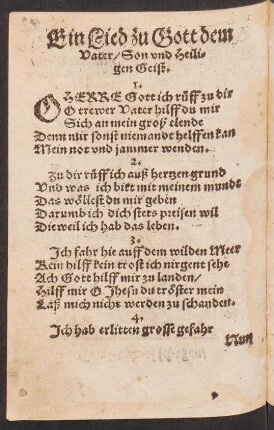 Ein Lied zu Gott dem
Vater / Son vnd Heili-
gen Geist.
1.
O HERRE Gott ich rüff zu dir
O trewer Vater hilff du mir
Sich an mein groß elende
Denn mir sonst niemandt helffen kan
Mein not vnd jammer wenden.
2.
Zu dir rüff ich auß hertzen grund
Vnd was ich bitt mit meinem mundt
Das wöllest du mir geben
Darumb ich dich stets preisen wil
Dieweil ich hab das leben.
3.
Ich fahr hie auff dem wilden Meer
Kein hilff kein trost ich nirgent sehe
Ach Gott hilff mir zu landen /
Hilff mir O Jhesu du tröster mein
Laß mich nicht werden zu schanden.
4.
Ich hab erlitten grosse gefahr
Nun